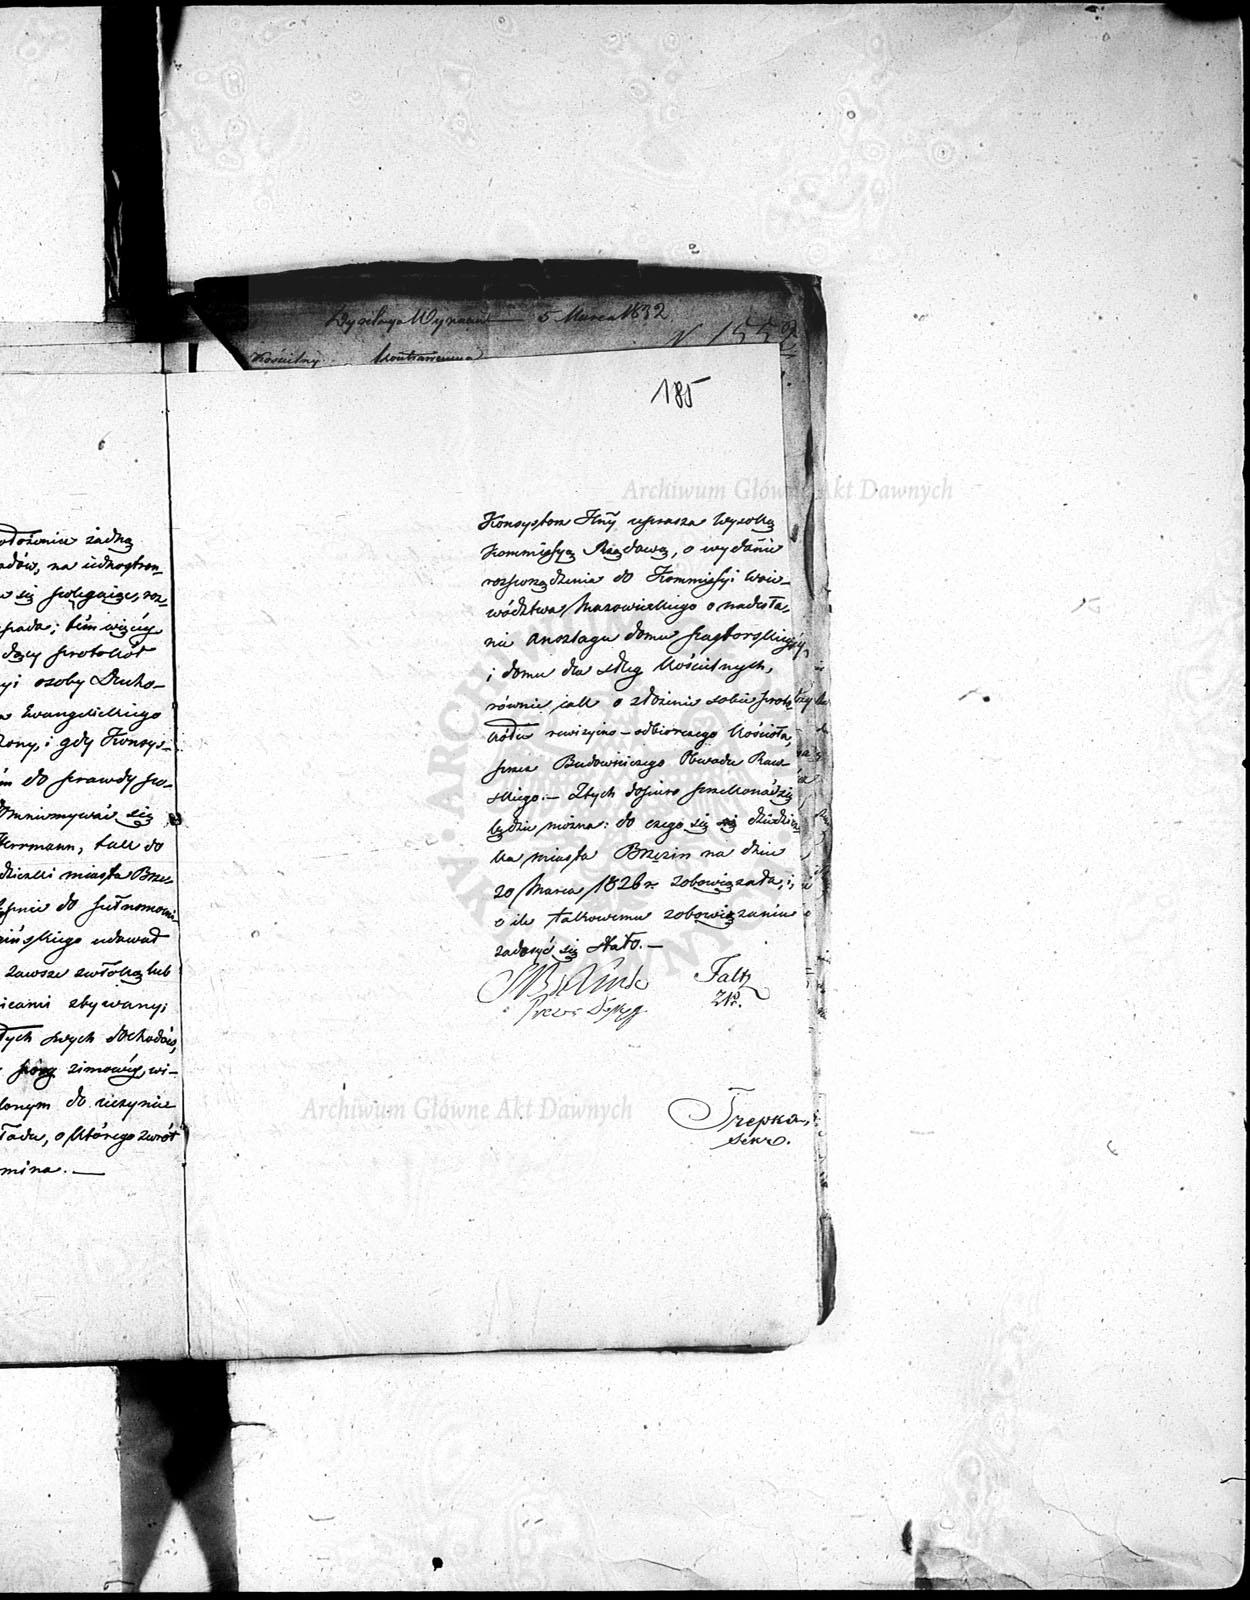 5 Marca 1832
N 155
Kościelny
185
Archiwum Główne Akt Dawnych
łożenie żadną
adów, na uskostron-
się polegające, roz-
pada; tém więcéj
dący protokół
yi osoby Ducho-
a Ewangelickiego
zony, i gdy Konsys-
m do prawdy po-
domniemywać się
Herrmann, tak do
dziczki miasta Brze-
pnie do pełnomocni-
ińskiego udawał
zawsze zwłoką lub
icami zbywany;
łych swych dochodów,
porę zimową, wi-
lonym do uczynie
ładu, o którego zwrot
mina. —
Konsystorz Jlny uprasza Wysoką
Kommissyą Rządową, o wydanie
rozporządzenia do Kommissyi Woie-
wództwa Mazowieckiego o nadesła-
nie anszlagu domu pastorskiego,
i domu dla sług kościelnych,
równie iak o złożenie sobie proto-
kółu rewizyino-odbiorczego kościoła,
przez Budowniczego Obwodu Raw-
skiego.— Z tych dopiero przekonać się
będzie można: do czego się dziedzicz
ka miasta Brzezin na dniu
20 Marca 1826 r. zobowiązała, i,
o ile takowemu zobowiązaniu
zadosyć się stało.—
Faltz
Trepka,
Sekr.
Archiwum Główne Akt Dawnych